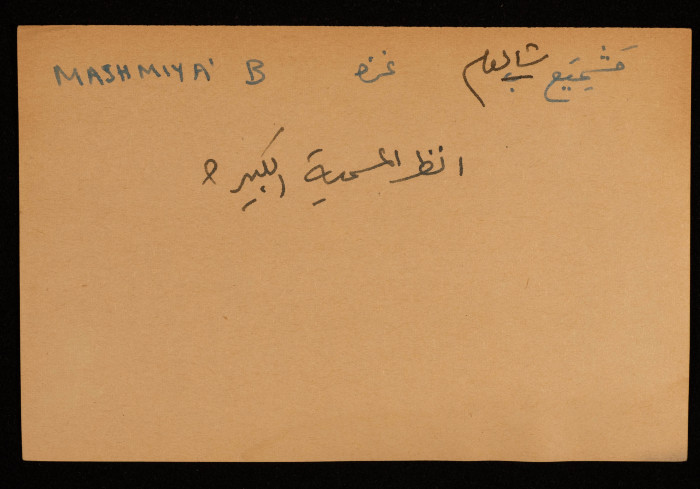 MASHMIYA' B غزه مَشْمِيَع شالوم
انظر المسمية الكبيرة